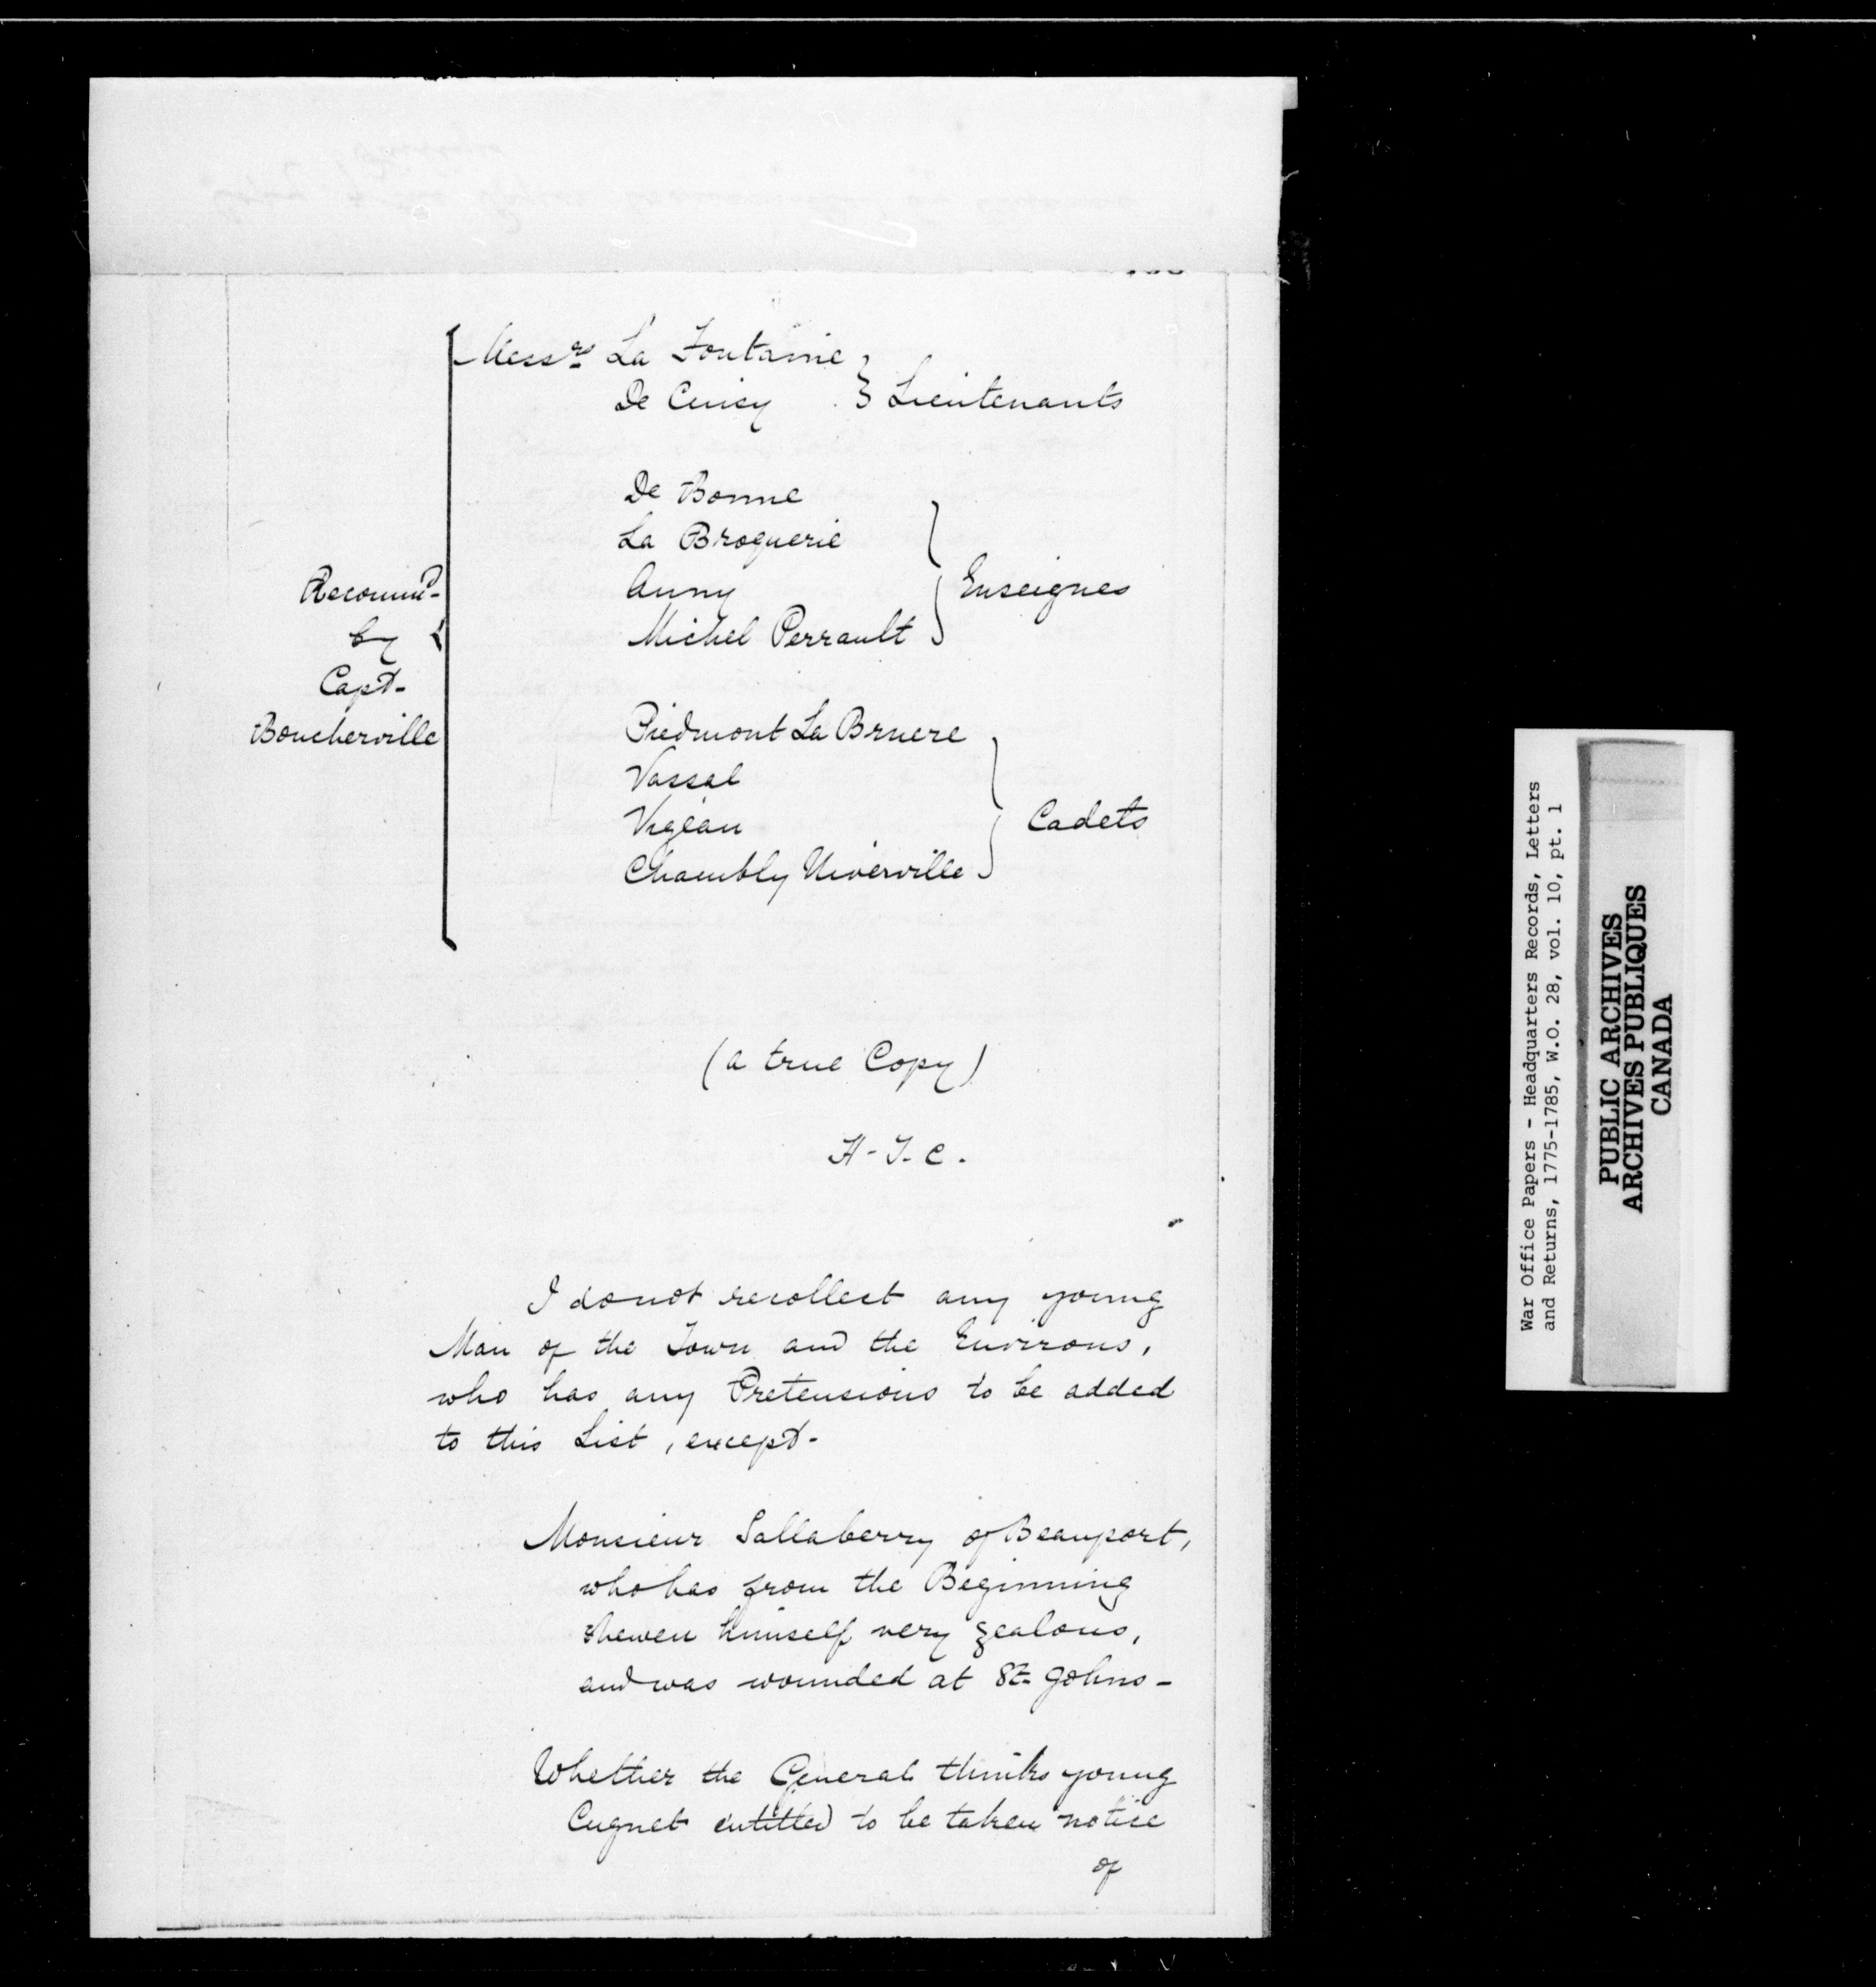 Messrs La Fontaine
De Cuisy } Lieutenants
De Bonne
La Broquerie
Anny } Enseignes
Michel Perrault
Recommd.
by
Capt.
Boucherville
Piedmont La Bruere
Vassal
Vigeau
Cadets
Chambly Niverville
(a true Copy)
H-T-C.
I do not recollect any young
Man of the Town and the Environs,
who has any Pretensions to be added
to this List, except-
Monsieur Sallaberry of Beauport,
who has from the Beginning
shewen himself very zealous,
and was wounded at St. Johns-
Whether the General thinks young
Cugnet entitled to be taken notice
of
War Office Papers - Headquarters Records, Letters
and Returns, 1775-1785, W.O. 28, vol. 10, pt. 1
PUBLIC ARCHIVES
ARCHIVES PUBLIQUES
CANADA